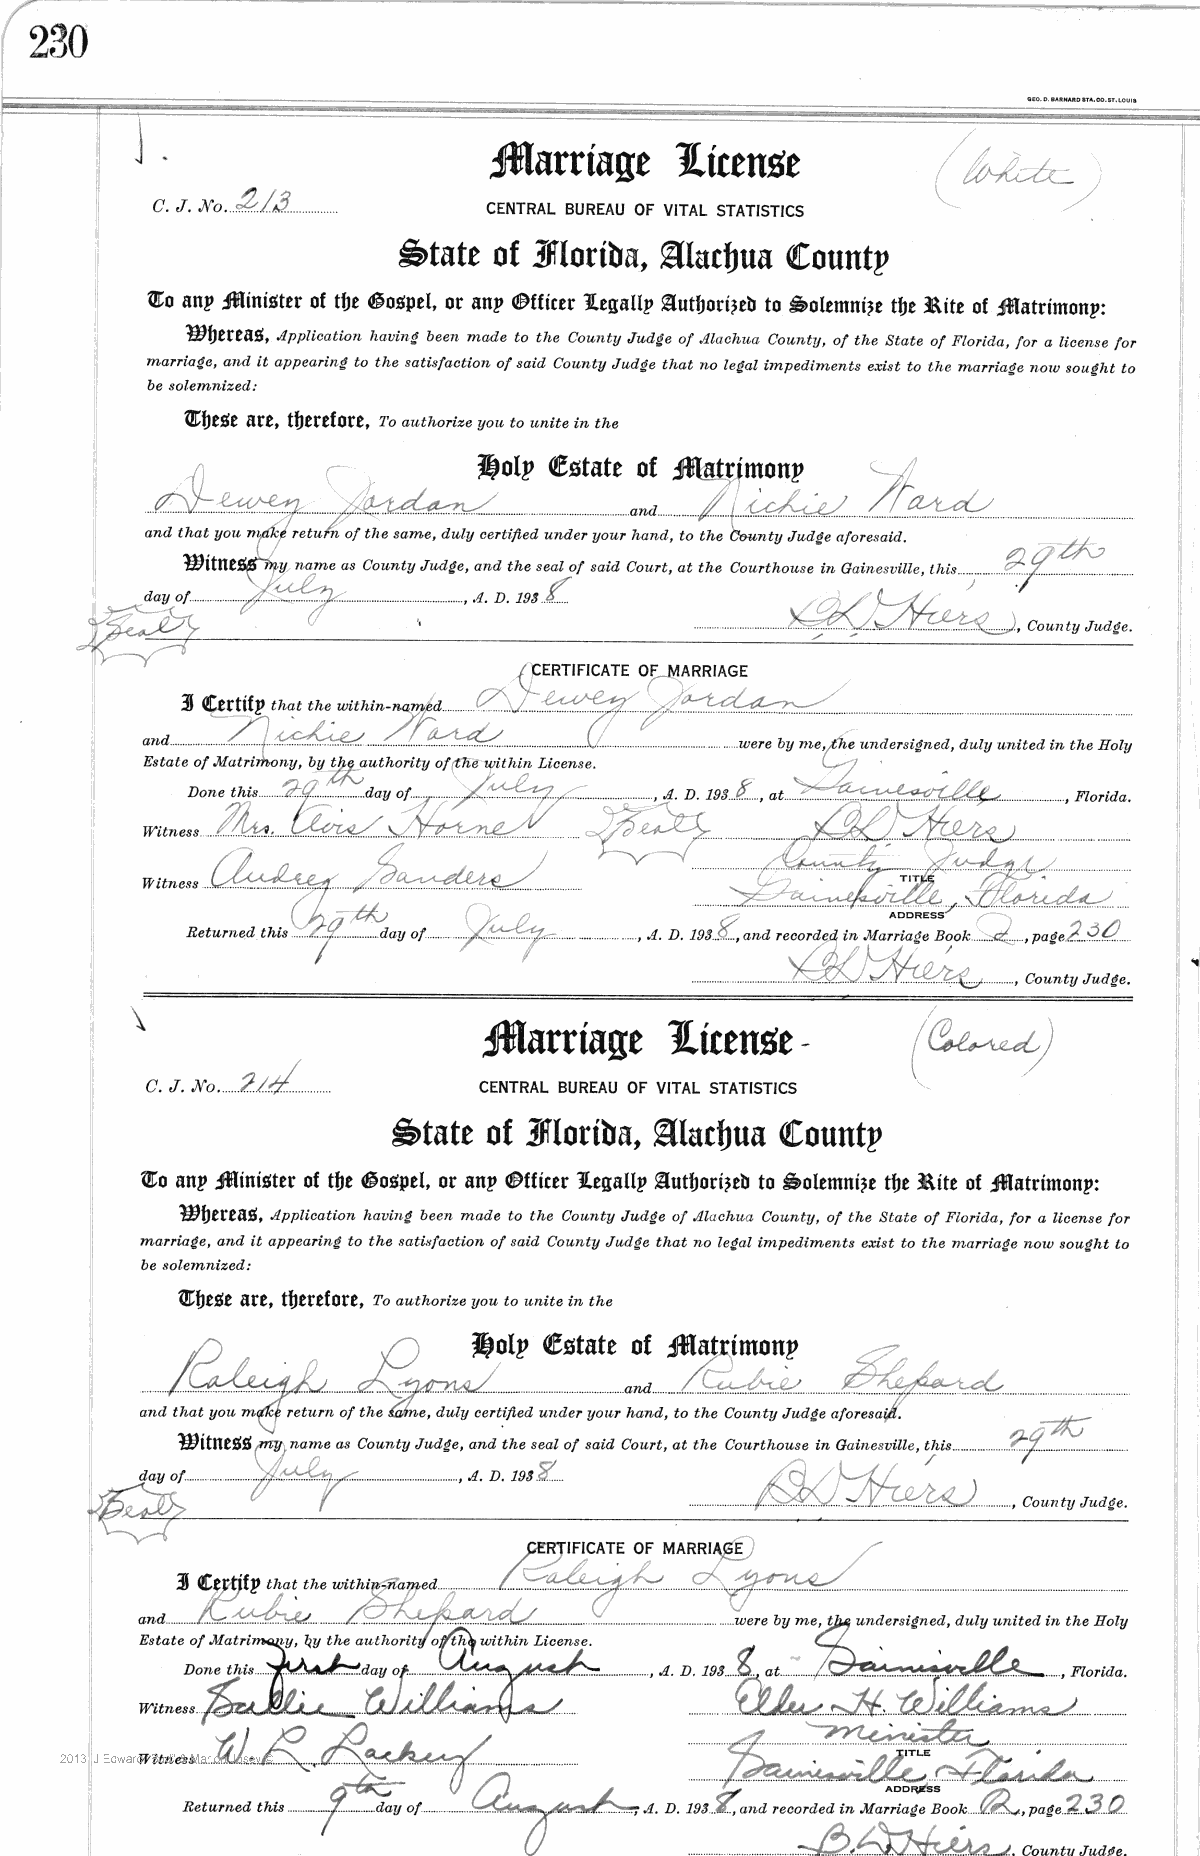 230
GEO. D. BARNARD STA. CO. ST. LOUIS
Marriage License (White)
C. J. No. 213
CENTRAL BUREAU OF VITAL STATISTICS
State of Florida, Alachua County
To any Minister of the Gospel, or any Officer Legally Authorized to Solemnize the Rite of Matrimony:
Whereas, Application having been made to the County Judge of Alachua County, of the State of Florida, for a license for
marriage, and it appearing to the satisfaction of said County Judge that no legal impediments exist to the marriage now sought to
be solemnized:
These are, therefore, To authorize you to unite in the
Holy Estate of Matrimony
Dewey Jordan and Nichie Ward
and that you make return of the same, duly certified under your hand, to the County Judge aforesaid.
Witness my name as County Judge, and the seal of said Court, at the Courthouse in Gainesville, this 29th
day of July, A. D. 1938
(Seal) B D Hiers, County Judge.
CERTIFICATE OF MARRIAGE
I Certify that the within-named Dewey Jordan
and Nichie Ward were by me, the undersigned, duly united in the Holy
Estate of Matrimony, by the authority of the within License.
Done this 29th day of July, A. D. 1938, at Gainesville, Florida.
Witness Mrs. Avis Horne (Seal) B D Hiers
County Judge
TITLE
Witness Audrey Sanders Gainesville, Florida
ADDRESS
Returned this 29th day of July, A. D. 1938, and recorded in Marriage Book 2, page 230
B D Hiers, County Judge.
Marriage License - (Colored)
C. J. No. 214
CENTRAL BUREAU OF VITAL STATISTICS
State of Florida, Alachua County
To any Minister of the Gospel, or any Officer Legally Authorized to Solemnize the Rite of Matrimony:
Whereas, Application having been made to the County Judge of Alachua County, of the State of Florida, for a license for
marriage, and it appearing to the satisfaction of said County Judge that no legal impediments exist to the marriage now sought to
be solemnized:
These are, therefore, To authorize you to unite in the
Holy Estate of Matrimony
Raleigh Lyons and Rubie Shepard
and that you make return of the same, duly certified under your hand, to the County Judge aforesaid.
Witness my name as County Judge, and the seal of said Court, at the Courthouse in Gainesville, this 29th
day of July, A. D. 1938
(Seal) B D Hiers, County Judge.
CERTIFICATE OF MARRIAGE
I Certify that the within-named Raleigh Lyons
and Rubie Shepard were by me, the undersigned, duly united in the Holy
Estate of Matrimony, by the authority of the within License.
Done this first day of August, A. D. 1938, at Gainesville, Florida.
Witness Sallie Williams Elder H. Williams
Minister
TITLE
Witness W. L. Lackey Gainesville, Florida
ADDRESS
Returned this 9th day of August, A. D. 1938, and recorded in Marriage Book 2, page 230
B. D. Hiers, County Judge.